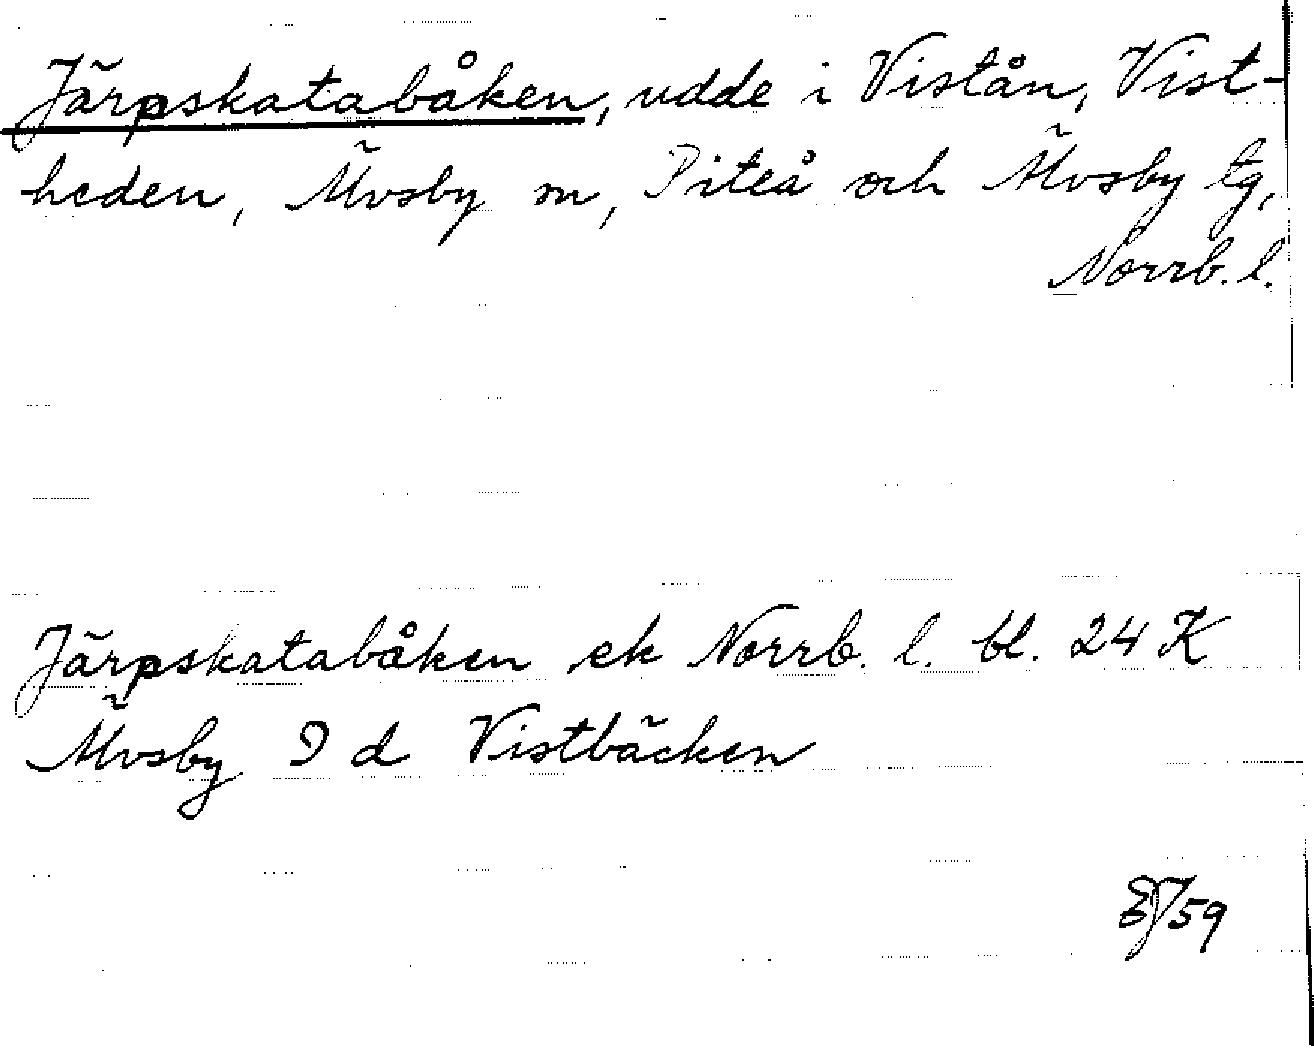 Järpskatabåken, udde i Vistån, Vist-
heden, Älvsby sn, Piteå och Älvsby tg,
Norrb. l.
Järpskatabåken ek Norrb. l. bl. 24 K
Älvsby I d Vistbäcken
EJ59